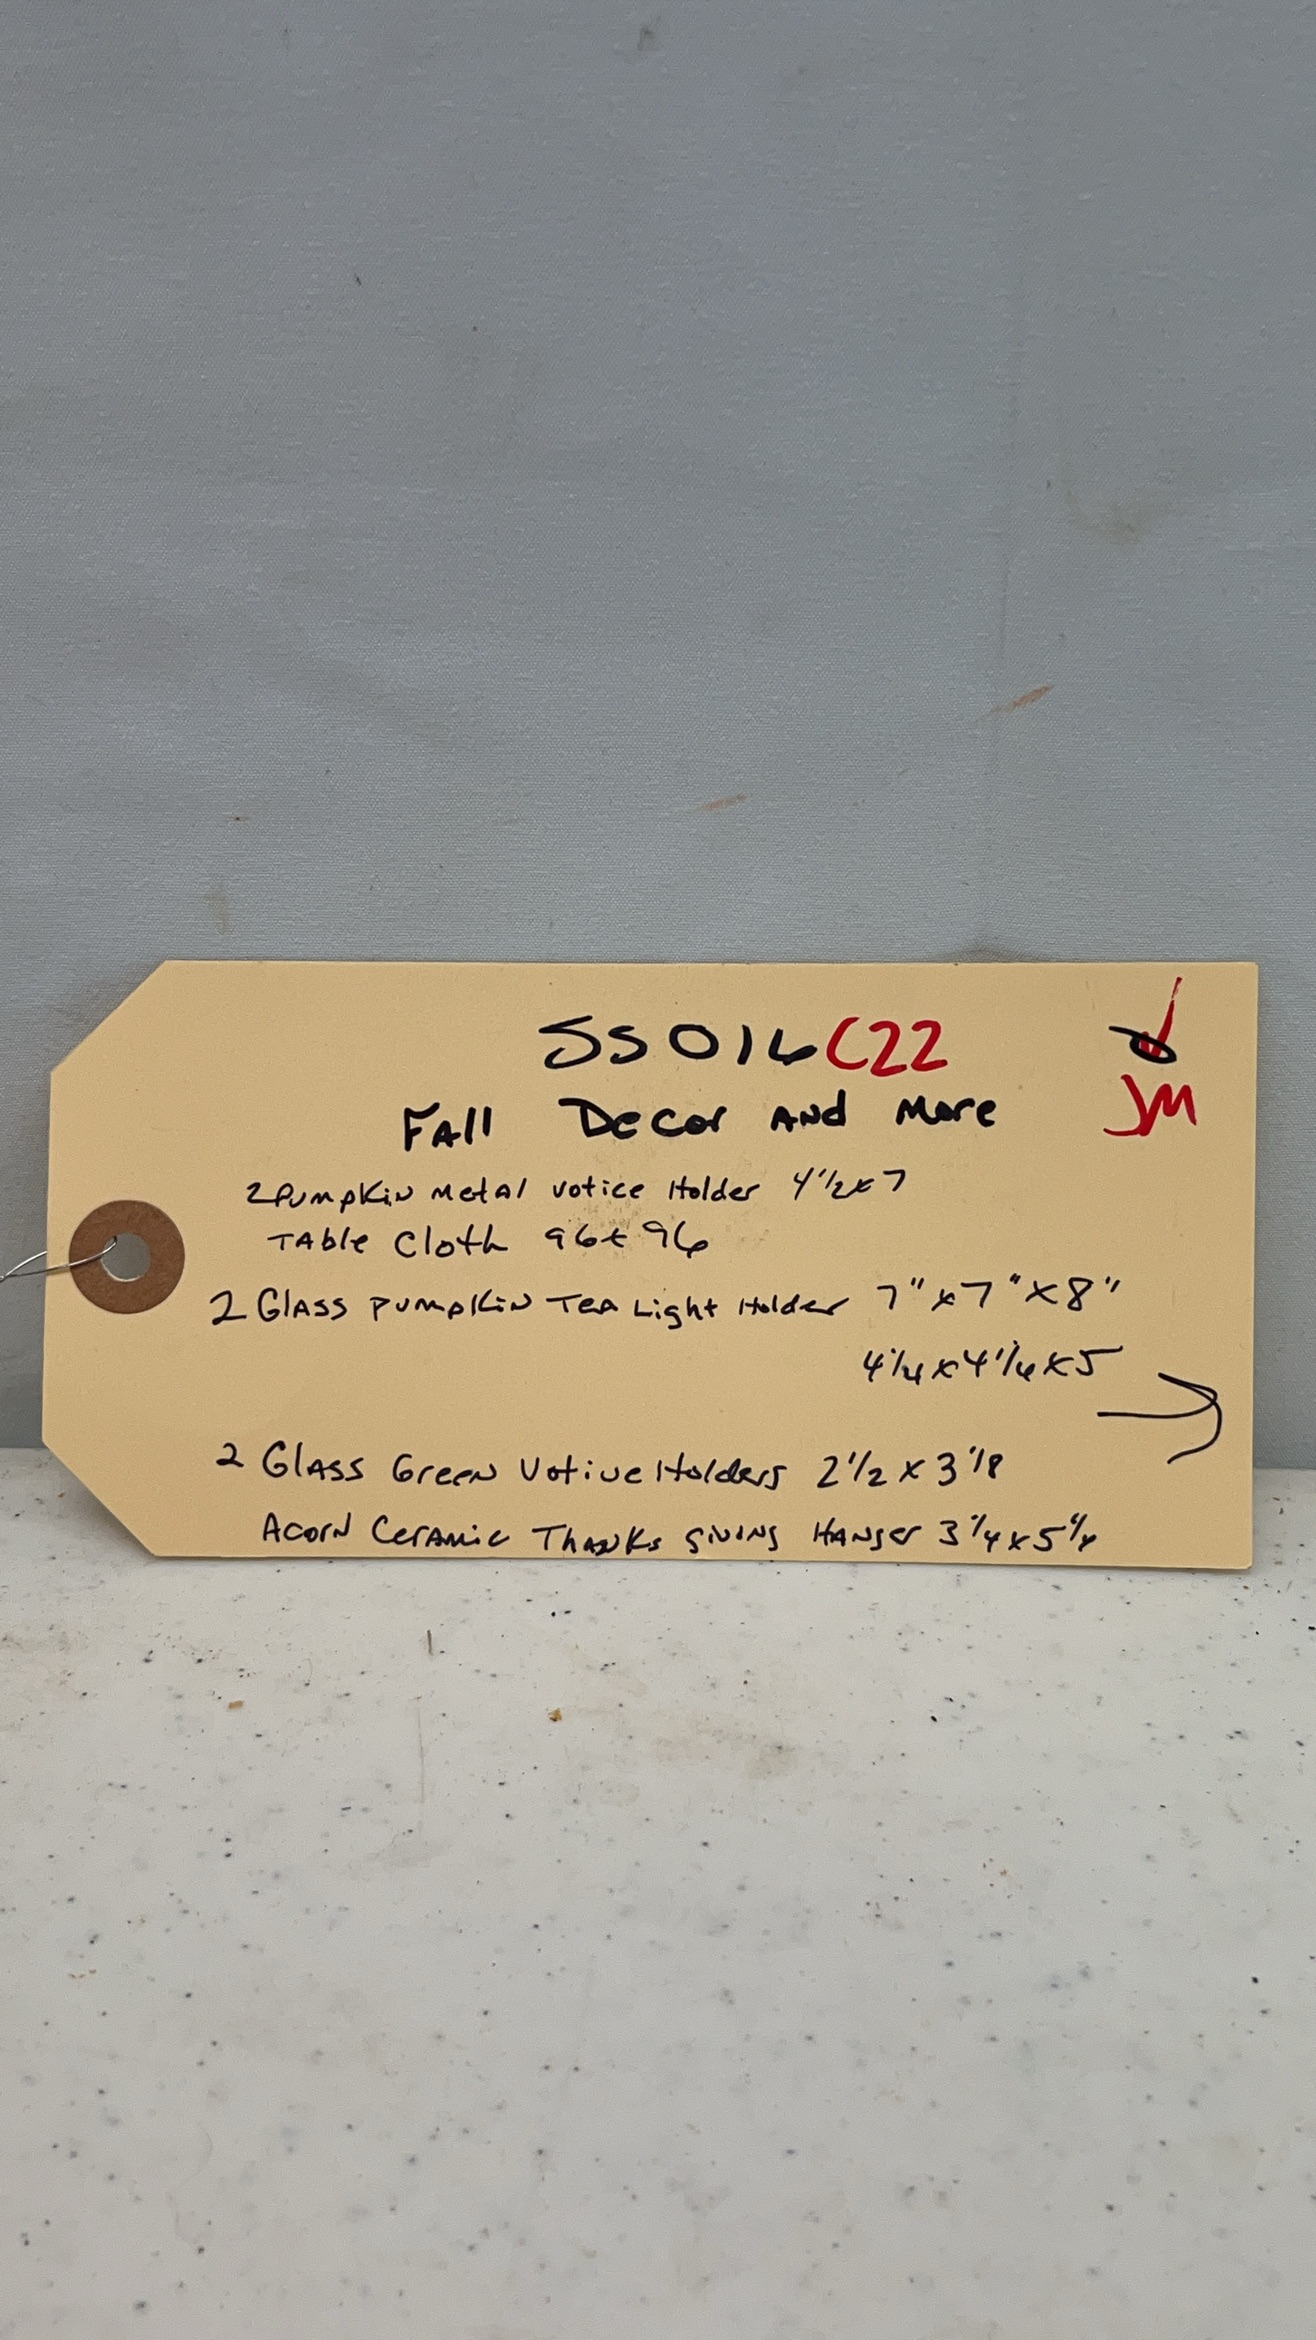 SS016C22
JM
Fall Decor and more
2 Pumpkin metal votice Holder 4 1/2 x 7
Table Cloth 96 x 96
2 Glass pumpkin Tea Light Holder 7" x 7" x 8"
4 1/4 x 4 1/4 x 5
2 Glass Green Votive Holders 2 1/2 x 3 1/8
Acorn Ceramic Thanks giving Hanger 3 1/4 x 5 1/4